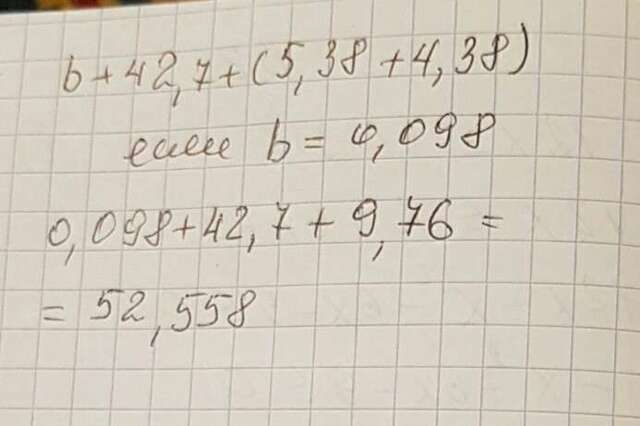 b + 42,7 + (5,38 + 4,38)
если b = 0,098
0,098 + 42,7 + 9,76 =
= 52,558